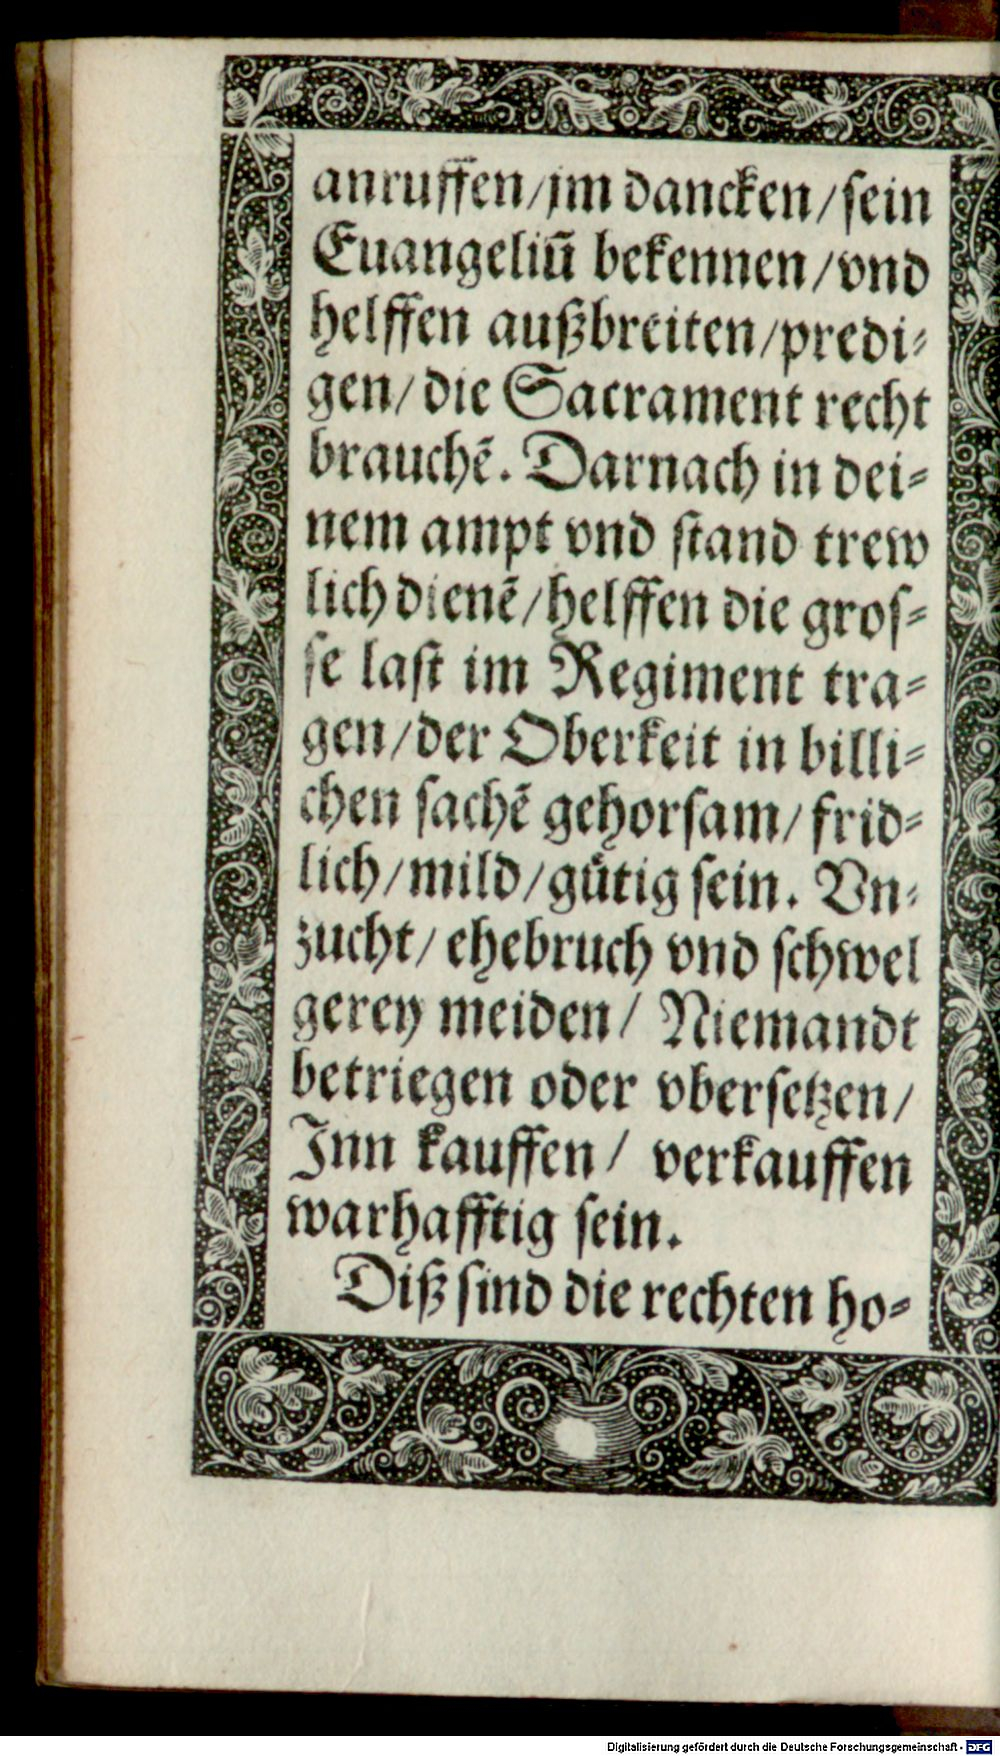 anruffen/jm dancken/sein
Euangeliū bekennen/vnd
helffen außbreiten/predi-
gen/die Sacrament recht
brauchē. Darnach in dei-
nem ampt vnd stand trew
lich dienē/helffen die gros-
se last im Regiment tra-
gen/der Oberkeit in billi-
chen sachē gehorsam/frid-
lich/mild/gütig sein. Vn-
zucht/ ehebruch vnd schwel
gerey meiden/ Niemandt
betriegen oder vbersetzen/
Inn kauffen/ verkauffen
warhafftig sein.
Diß sind die rechten ho-
Digitalisierung gefördert durch die Deutsche Forschungsgemeinschaft - DFG